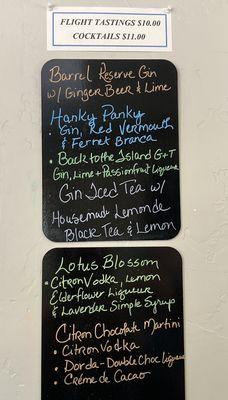 FLIGHT TASTINGS $10.00
COCKTAILS $11.00
Barrel Reserve Gin
w/ Ginger Beer & Lime
Hanky Panky
• Gin, Red Vermouth
& Ferret Branca
• Back to the Island G+T
Gin, Lime + Passionfruit Liqueur
Gin Iced Tea w/
Housemade Lemonde
Black Tea & Lemon
Lotus Blossom
• Citron Vodka, Lemon
Elderflower Liqueur
& Lavender Simple Syrup
Citron Chocolate Martini
• Citron Vodka
• Dorda-Double Choc Liqueur
• Créme de Cacao